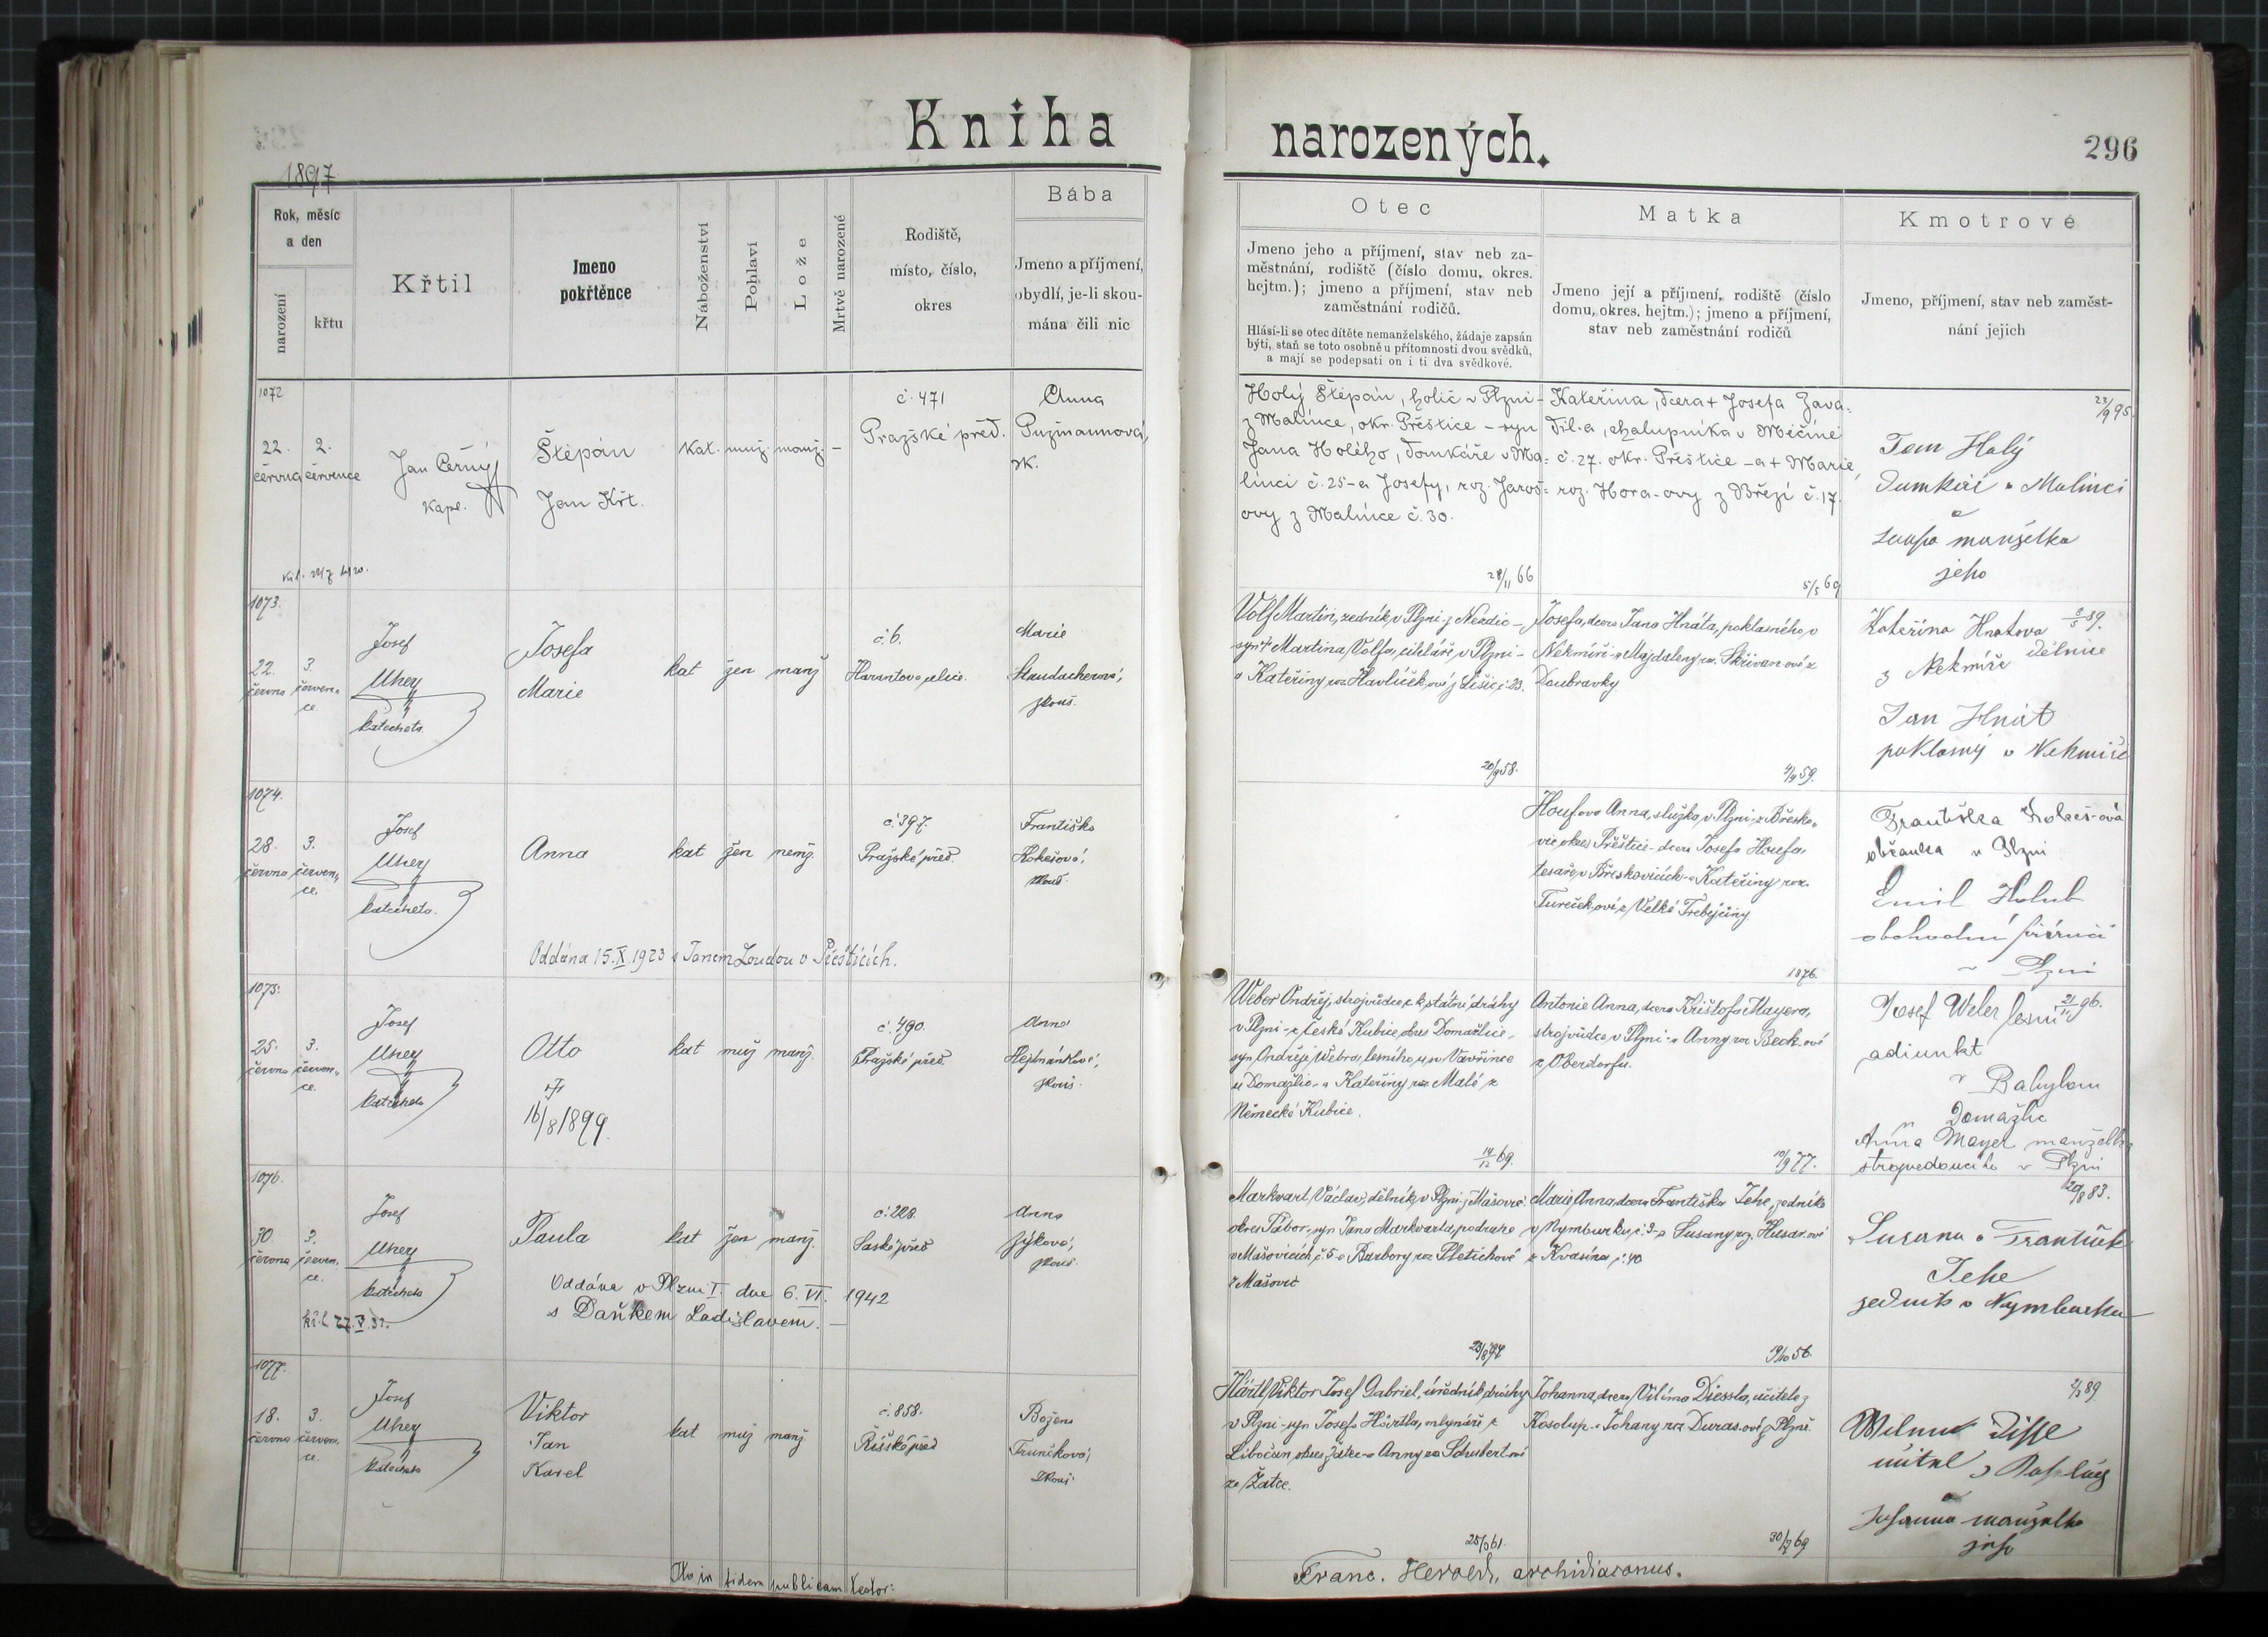 Kniha
narozených.
296
1897
Rok, měsíc
a den
narození
křtu
Křtil
Jmeno
pokřtěnce
Náboženství
Pohlaví
Lože
Mrtvě narozené
Rodiště,
místo, číslo,
okres
Bába
Jmeno a příjmení,
obydlí, je-li skou-
mána čili nic
Otec
Jmeno jeho a příjmení, stav neb za-
městnání, rodiště (číslo domu, okres.
hejtm.); jmeno a příjmení, stav neb
zaměstnání rodičů.
Hlásí-li se otec dítěte nemanželského, žádaje zapsán
býti, staň se toto osobně u přítomnosti dvou svědků,
a mají se podepsati on i ti dva svědkové.
Matka
Jmeno její a příjmení, rodiště (číslo
domu, okres. hejtm.); jmeno a příjmení,
stav neb zaměstnání rodičů
Kmotrové
Jmeno, příjmení, stav neb zaměst-
nání jejich
1072
22.
června
2.
července
Jan Černý
kapl.
Štěpán
Jan Křt.
kat. muž. manž. –
č. 471
Pražské před.
Anna
Puzmannová,
zk.
Holý Štěpán, holič v Plzni-
z Malince, okr. Přeštice - syn
Jana Holého, domkáře v Ma-
linci č. 25-a Josefy, roz. Jaroš-
ovy z Malince č. 30.
28/11 66
Kateřina, dcera + Josefa Zava-
dil-a, chalupníka v Měčíně
č. 27. okr. Přeštice - a + Marie,
roz. Hora-ovy z Březí č. 17.
5/5 69
23/9 95.
Jan Holý
domkář v Malinci
a
manželka
jeho
1073.
22.
června
3.
červen-
ce.
Josef
Uhey
katecheta.
Josefa
Marie
kat žen manž
č. 6.
Harantova ulice.
Marie
Staudacherová,
zkouš.
Volf Martin, zedník v Plzni z Nezdic -
syn + Martina Volfa, cihláře v Plzni -
a Kateřiny roz. Havlíček-ové z Lišic č. 23.
20/9 58.
Josefa, dcera Jana Hnáta, poklasného v
Nekmíři - a Majdaleny roz. Skřivan-ové z
Doubravky.
4/4 59.
Kateřina Hnatova 8/5 89.
z Nekmíře dělnice
Jan Hnát
poklasný v Nekmíři
1074.
28.
června
3.
červen-
ce.
Josef
Uhey
katecheta.
Anna
kat žen nemž.
č. 397.
Pražské před.
Františka
Kokešová,
zkouš.
Oddána 15.X.1923 s Janem Loudou v Přešticích.
Houfova Anna, služka v Plzni - z Břesko-
vic okres Přeštice - dcera Josefa Houfa,
tesaře v Břeskovicích - a Kateřiny roz.
Tureček-ové z Velké Trebýčiny.
1876.
Františka Kokeš-ová
občanka v Plzni
Emil Holub
obchodní
v Plzni
1075.
25.
června
3.
červen-
ce.
Josef
Uhey
katecheta
Otto
†
16/8 1899.
kat muž manž.
č. 490.
Pražské před.
Anna
Hejtmánková,
zkouš.
Weber Ondřej, strojvůdce c. k. státní dráhy
v Plzni - z České Kubice, okres Domažlice,
syn Ondřeje Webra, lesního u sv. Vavřince
u Domažlic - a Kateřiny roz. Malé z
Německé Kubice.
14/12 69.
Antonie Anna, dcera Krištofa Mayera,
strojvůdce v Plzni - a Anny roz. Beck-ové
z Oberdorfu.
10/9 77.
Josef Weber lesní 21/11 96.
adjunkt
v Babylonu
Domažlic
Anna Mayer manželka
strojvedoucího v Plzni
1076.
30.
června
3.
červen-
ce.
Josef
Uhey
katecheta
Paula
kat žen manž.
č. 228.
Saské před.
Anna
Zýková,
zkouš.
Oddána v Plzni I. dne 6. VI. 1942
s Daňkem Ladislavem. –
Markvart Václav, dělník v Plzni z Mašovic
okres Tábor, syn Jana Markvarta, podruha
v Mašovicích č. 5 - a Barbory roz. Pletichové
z Mašovic
Marie Anna, dcera Františka Jehe, zedníka
v Nymburku č. 3 - a Susany roz. Husar-ové
z Kvasína, č. 40
9/10 56.
20/8 83.
Susana a František
Jehe
zedník v Nymburku
1077.
18.
června
3.
červen-
ce.
Josef
Uhey
katecheta
Viktor
Jan
Karel
kat muž manž
č. 858.
Říšské před
Božena
Trunčková,
zkouš.
Härtl Viktor Josef Gabriel, úředník dráhy
v Plzni - syn Josefa Härtla, mlynáře z
Libočan, okres Žatec - a Anny roz. Schubert-ové
ze Žatce.
25/3 61.
Johanna, dcera Viléma Diessla, učitele z
Kosolup - a Johany roz. Duras-ové z Plzně.
30/7 69
2/1 89.
učitel
Johanna manželka
jeho
Ita in fidem publicam testor:
Franc. Herold, archidiaconus.